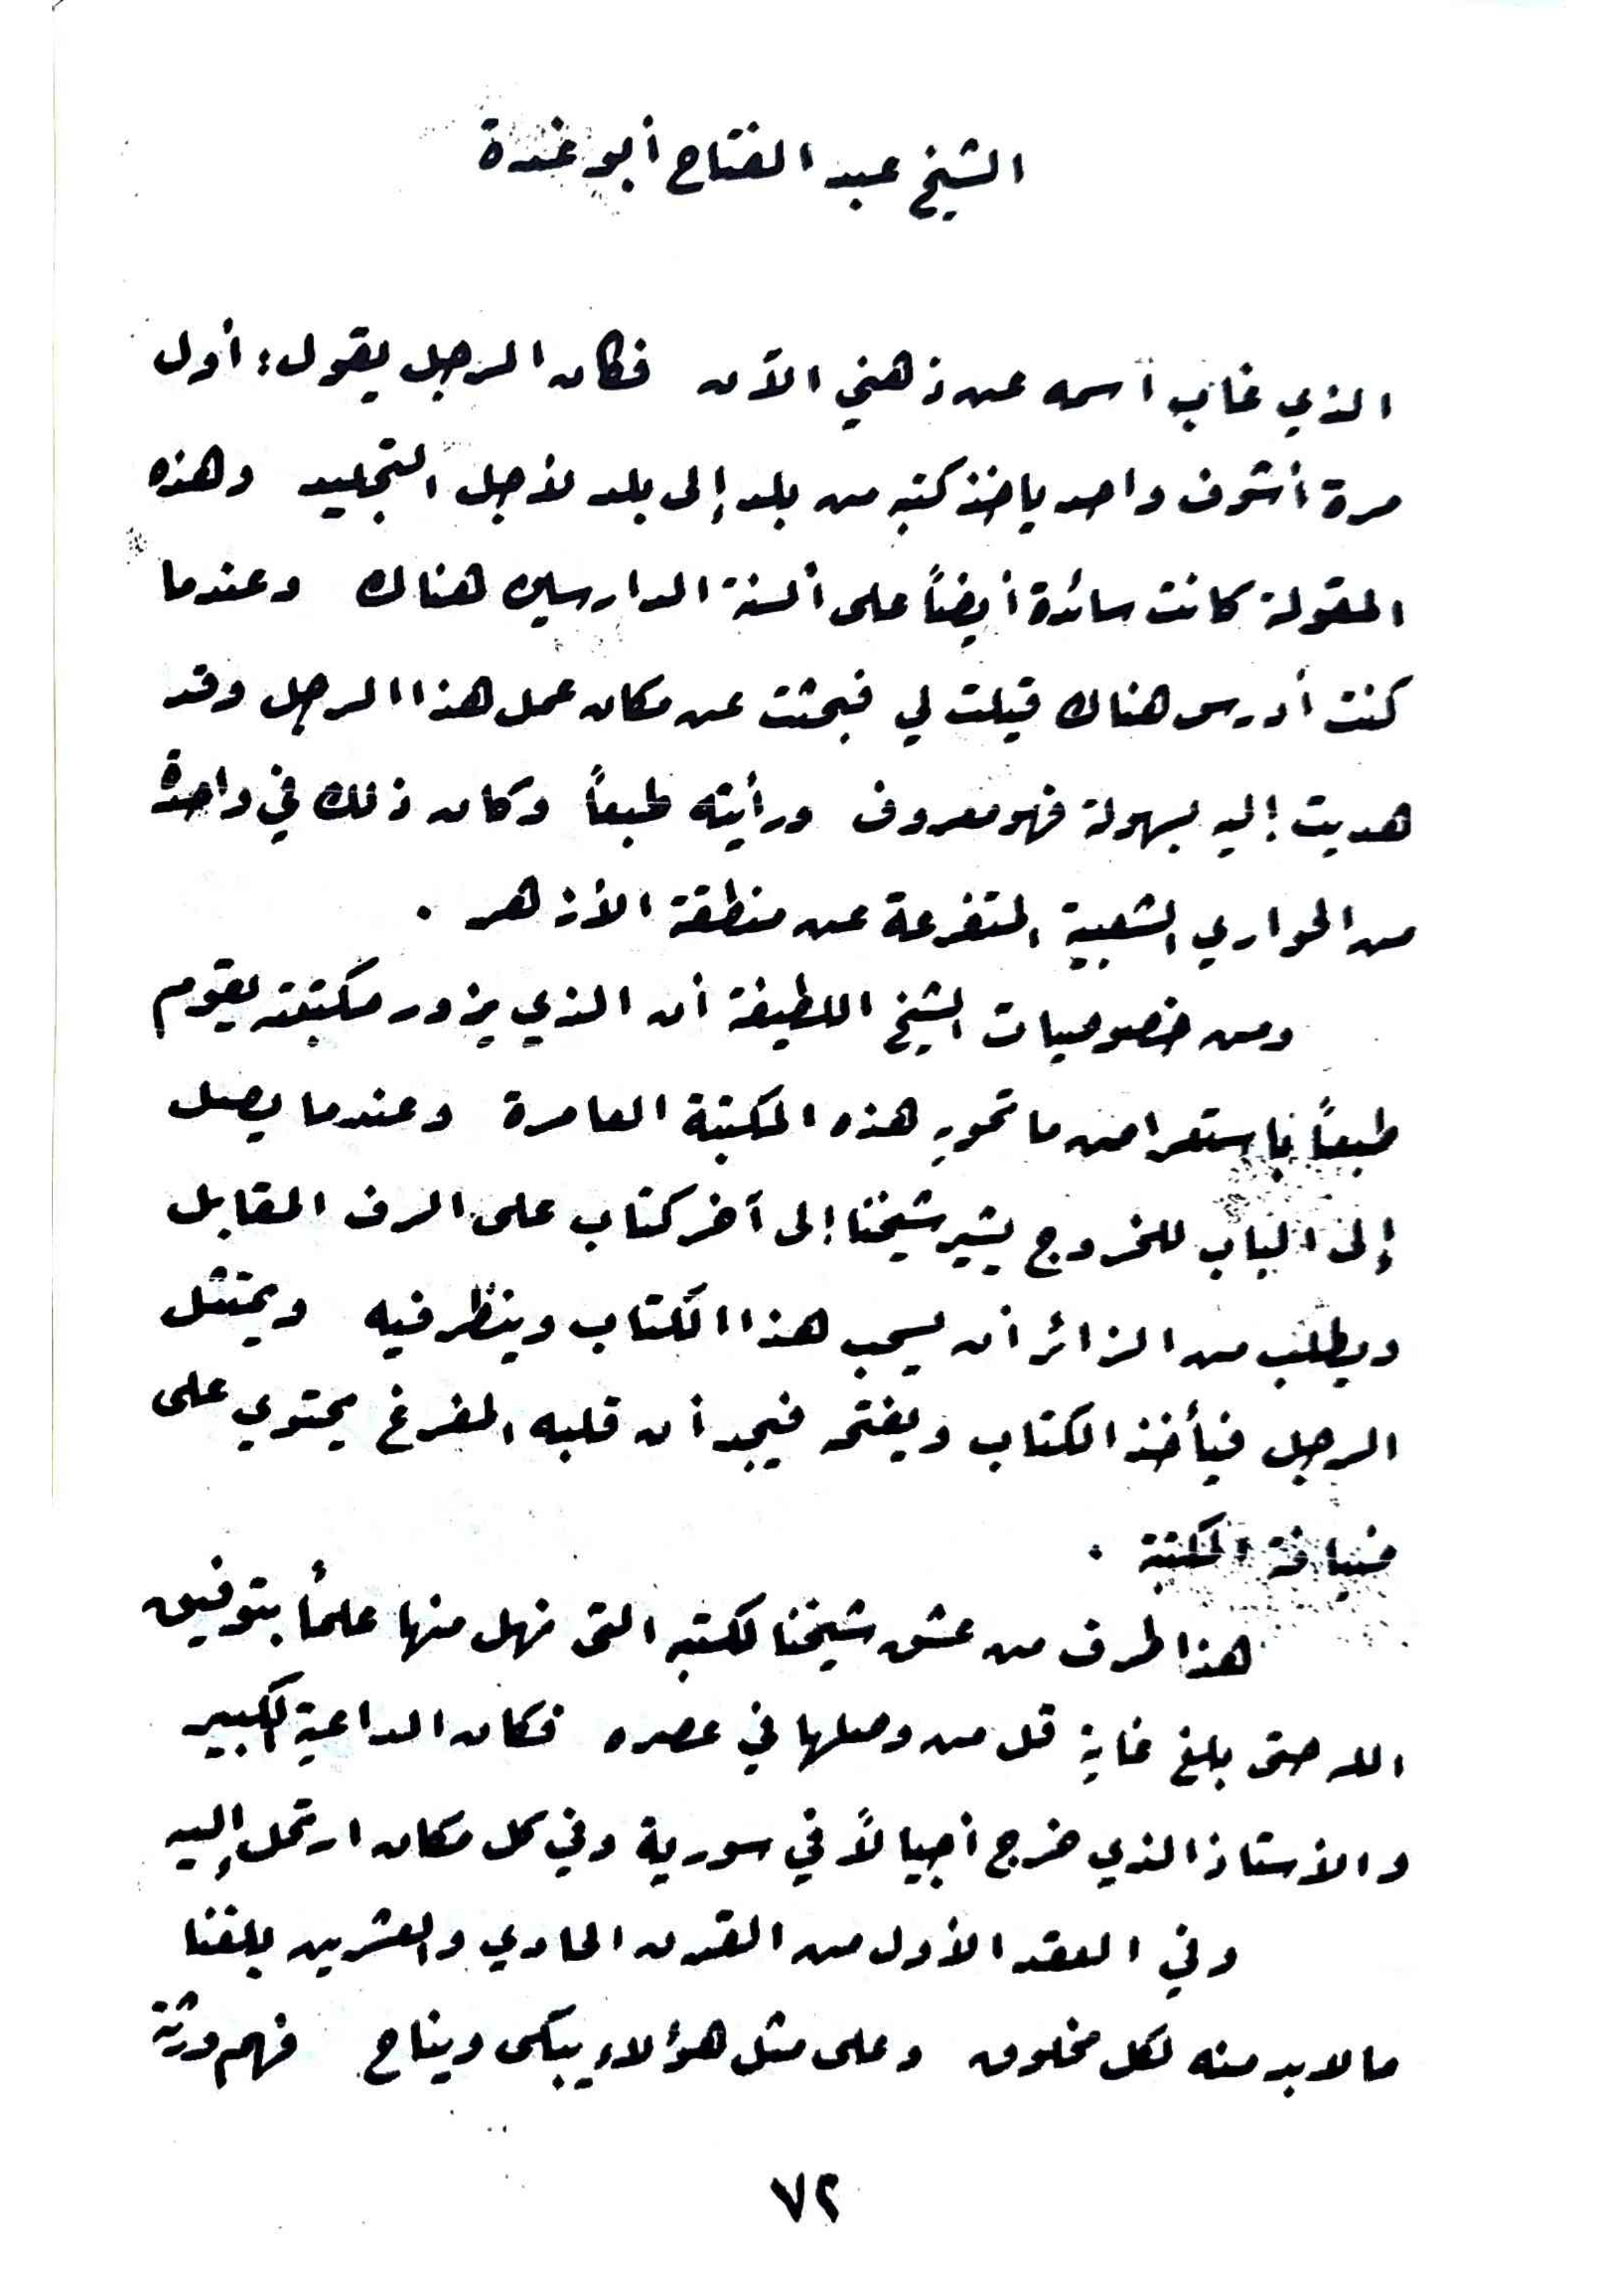 الشيخ عبد الفتاح أبو غدة
الذي غاب اسمه عن ذهني الآن فكان الرجل يقول: أول
مرة أشوف واحد ياخذ كتبه من بلد إلى بلد لأجل التجليد وهذه
المقولة كانت سائدة أيضاً على ألسنة الدارسين هناك وعندما
كنت أدرس هناك قيلت لي فبحثت عن مكان عمل هذا الرجل وقد
هديت إليه بسهولة فهو معروف ورأيته طبعاً وكان ذلك في واحدة
من الحواري الشعبية المتفرعة عن منطقة الأزهر .
ومن خصوصيات الشيخ اللطيفة أن الذي يزور مكتبته يقوم
طبعاً باستعراض ما تحويه هذه المكتبة العامرة وعندما يصل
إلى الباب للخروج يشير شيخنا إلى آخر كتاب على الرف المقابل
ويطلب من الزائر أن يسحب هذا الكتاب وينظر فيه ويمتثل
الرجل فيأخذ الكتاب ويفتحه فيجد أن قلبه المفرغ يحتوي على
ضيافة المكتبة .
هذا طرف من عشق شيخنا لكتبه التي نهل منها علماً بتوفيق
الله حتى بلغ غاية قل من وصلها في عصره فكان الداعية الكبير
والأستاذ الذي خرج أجيالاً في سورية وفي كل مكان ارتحل إليه
وفي العقد الأول من القرن الحادي والعشرين بلغنا
ما لا بد منه لكل مخلوق وعلى مثل هؤلاء يبكى ويناح فهم ورثة
٧٢